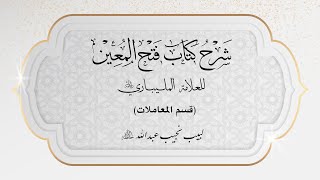 شَرْحُ كِتَابِ فَتْحِ المُعِيْن
للعلامة المليباري
(قسم المعاملات)
لبيب نجيب عبدالله